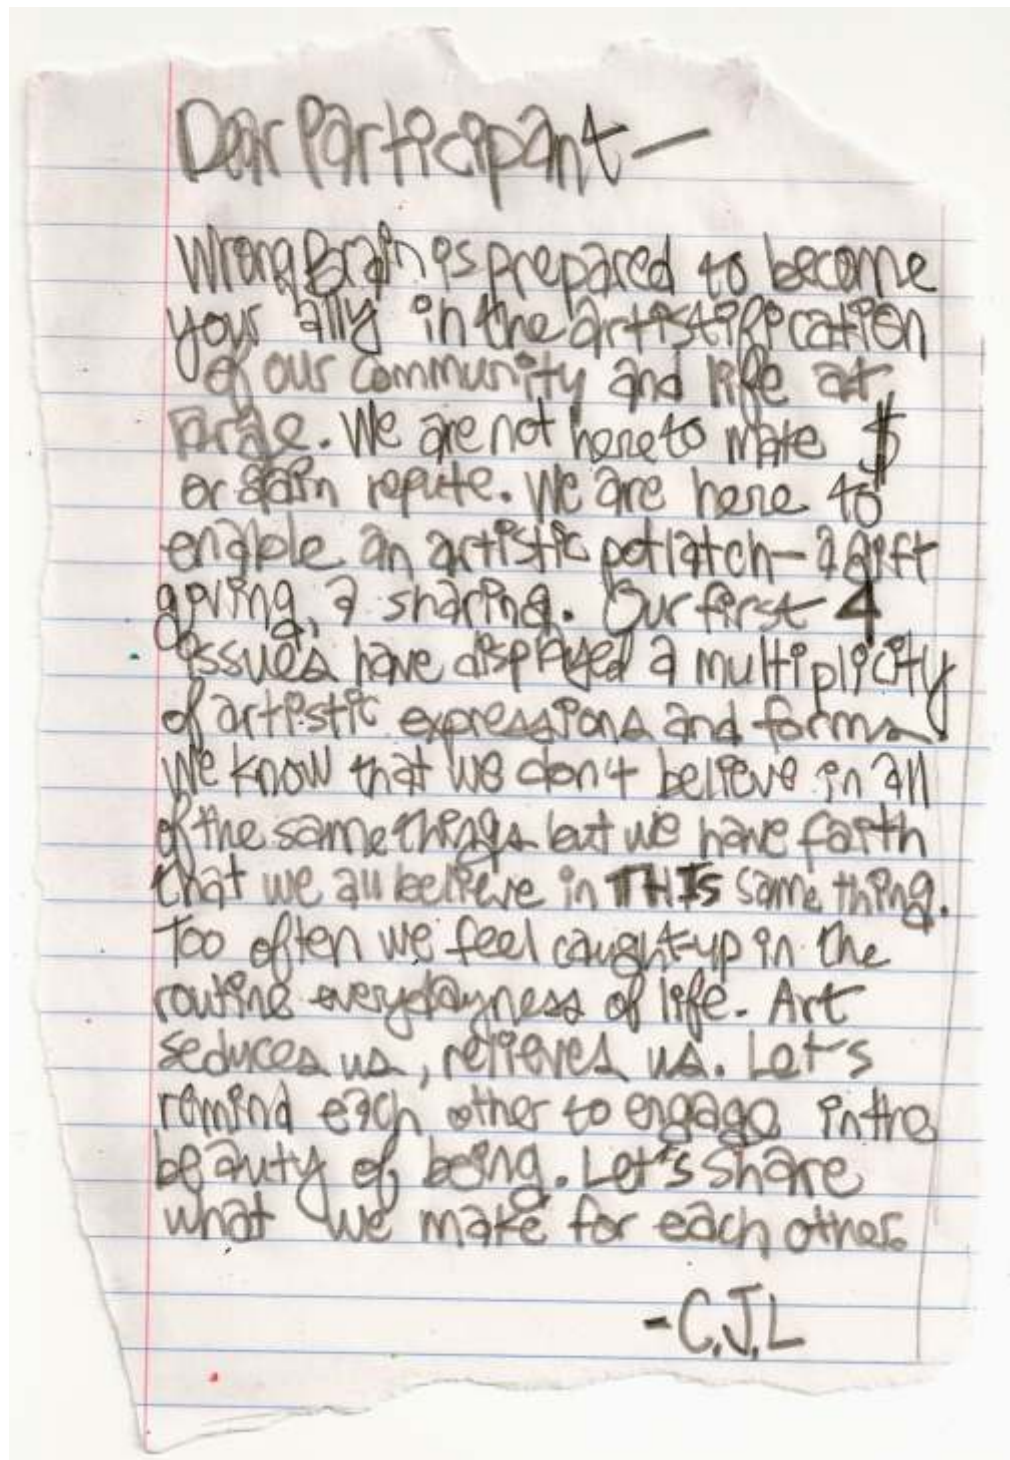 Dear Participant—
Wrong Brain is prepared to become
your ally in the artistification
of our community and life at
large. We are not here to make $
or gain repute. We are here to
enable an artistic potlatch— a gift
giving, a sharing. Our first 4
issues have displayed a multiplicity
of artistic expressions and forms.
We know that we don't believe in all
of the same things but we have faith
that we all believe in THIS same thing.
Too often we feel caught-up in the
routine everydayness of life. Art
seduces us, relieves us. Let's
remind each other to engage in the
beauty of being. Let's share
what we make for each other.
-C.J.L